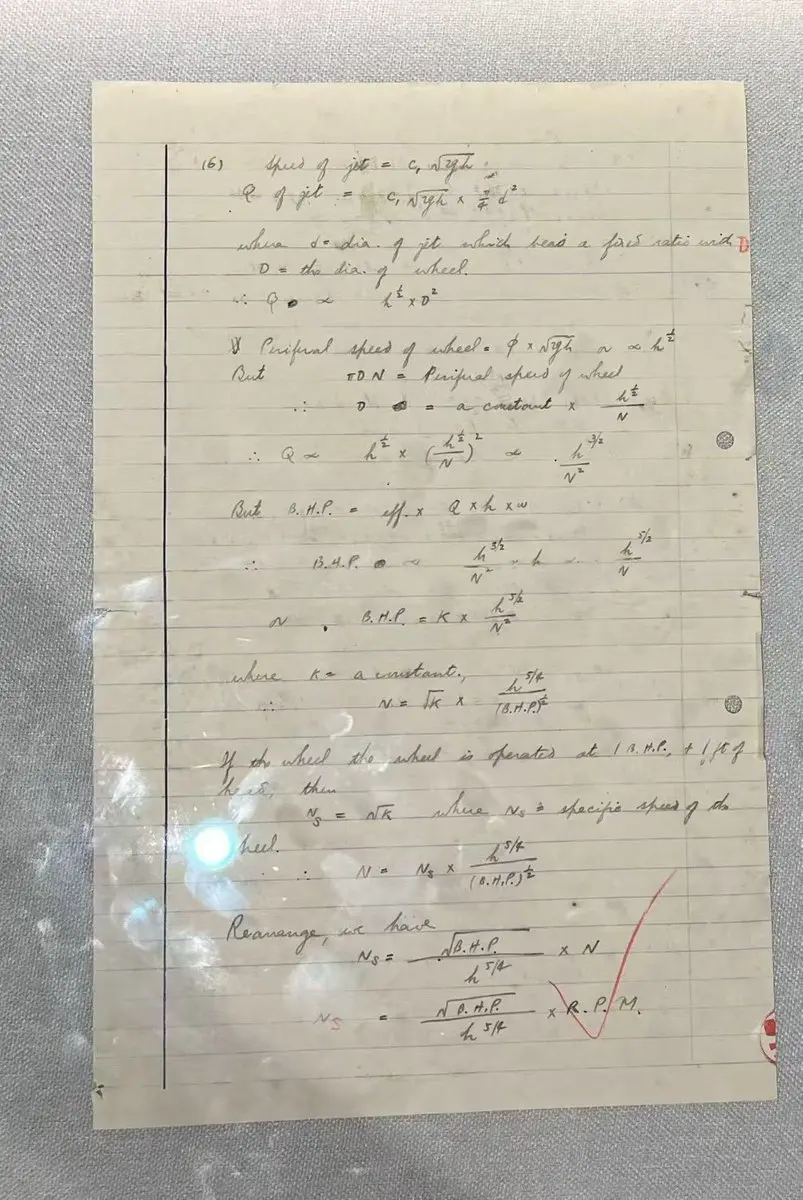 (6) Speed of jet = c₁ √2gh
Q of jet = c₁ √2gh × π/4 d²
where d = dia. of jet which bears a fixed ratio with D
D = the dia. of wheel.
∴ Q ∝ h^½ × D²
Periferal speed of wheel = φ × √2gh or ∝ h^½
But πDN = Periferal speed of wheel
∴ D = a constant × h^½/N
∴ Q ∝ h^½ × (h^½/N)² ∝ h^3/2/N²
But B.H.P. = eff. × Q × h × w
∴ B.H.P. ∝ h^3/2/N² × h ∝ h^5/2/N
or B.H.P. = K × h^5/2/N²
where K = a constant.,
∴ N = √K × h^5/4/(B.H.P.)^½
If the wheel the wheel is operated at 1 B.H.P., + 1 ft of
head, then
N_S = √K where N_S = specific speed of the
heel.
∴ N = N_S × h^5/4/(B.H.P.)^½
Rearange, we have
N_S = √B.H.P./h^5/4 × N
N_S = √B.H.P./h^5/4 × R.P.M.